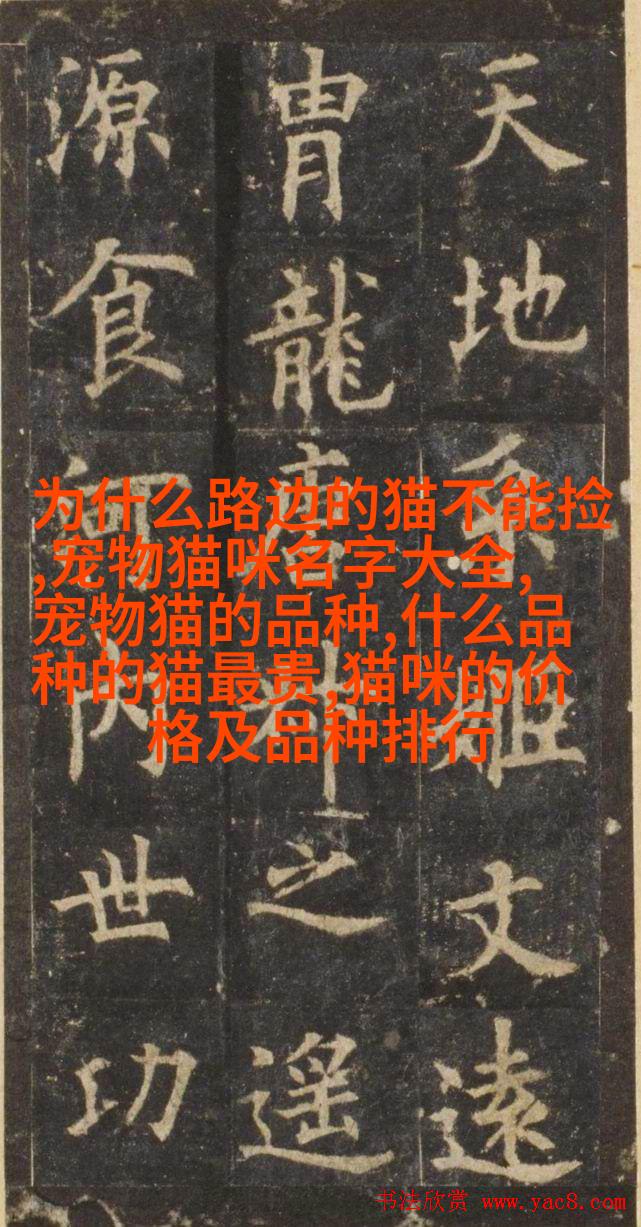 天地系姬文遠
胄龍唐叔之遥
源食河内世功
为什么路边的猫不能捡
,宠物猫咪名字大全,
宠物猫的品种,什么品
种的猫最贵,猫咪的价
格及品种排行
书法欣赏 www.yac8.com